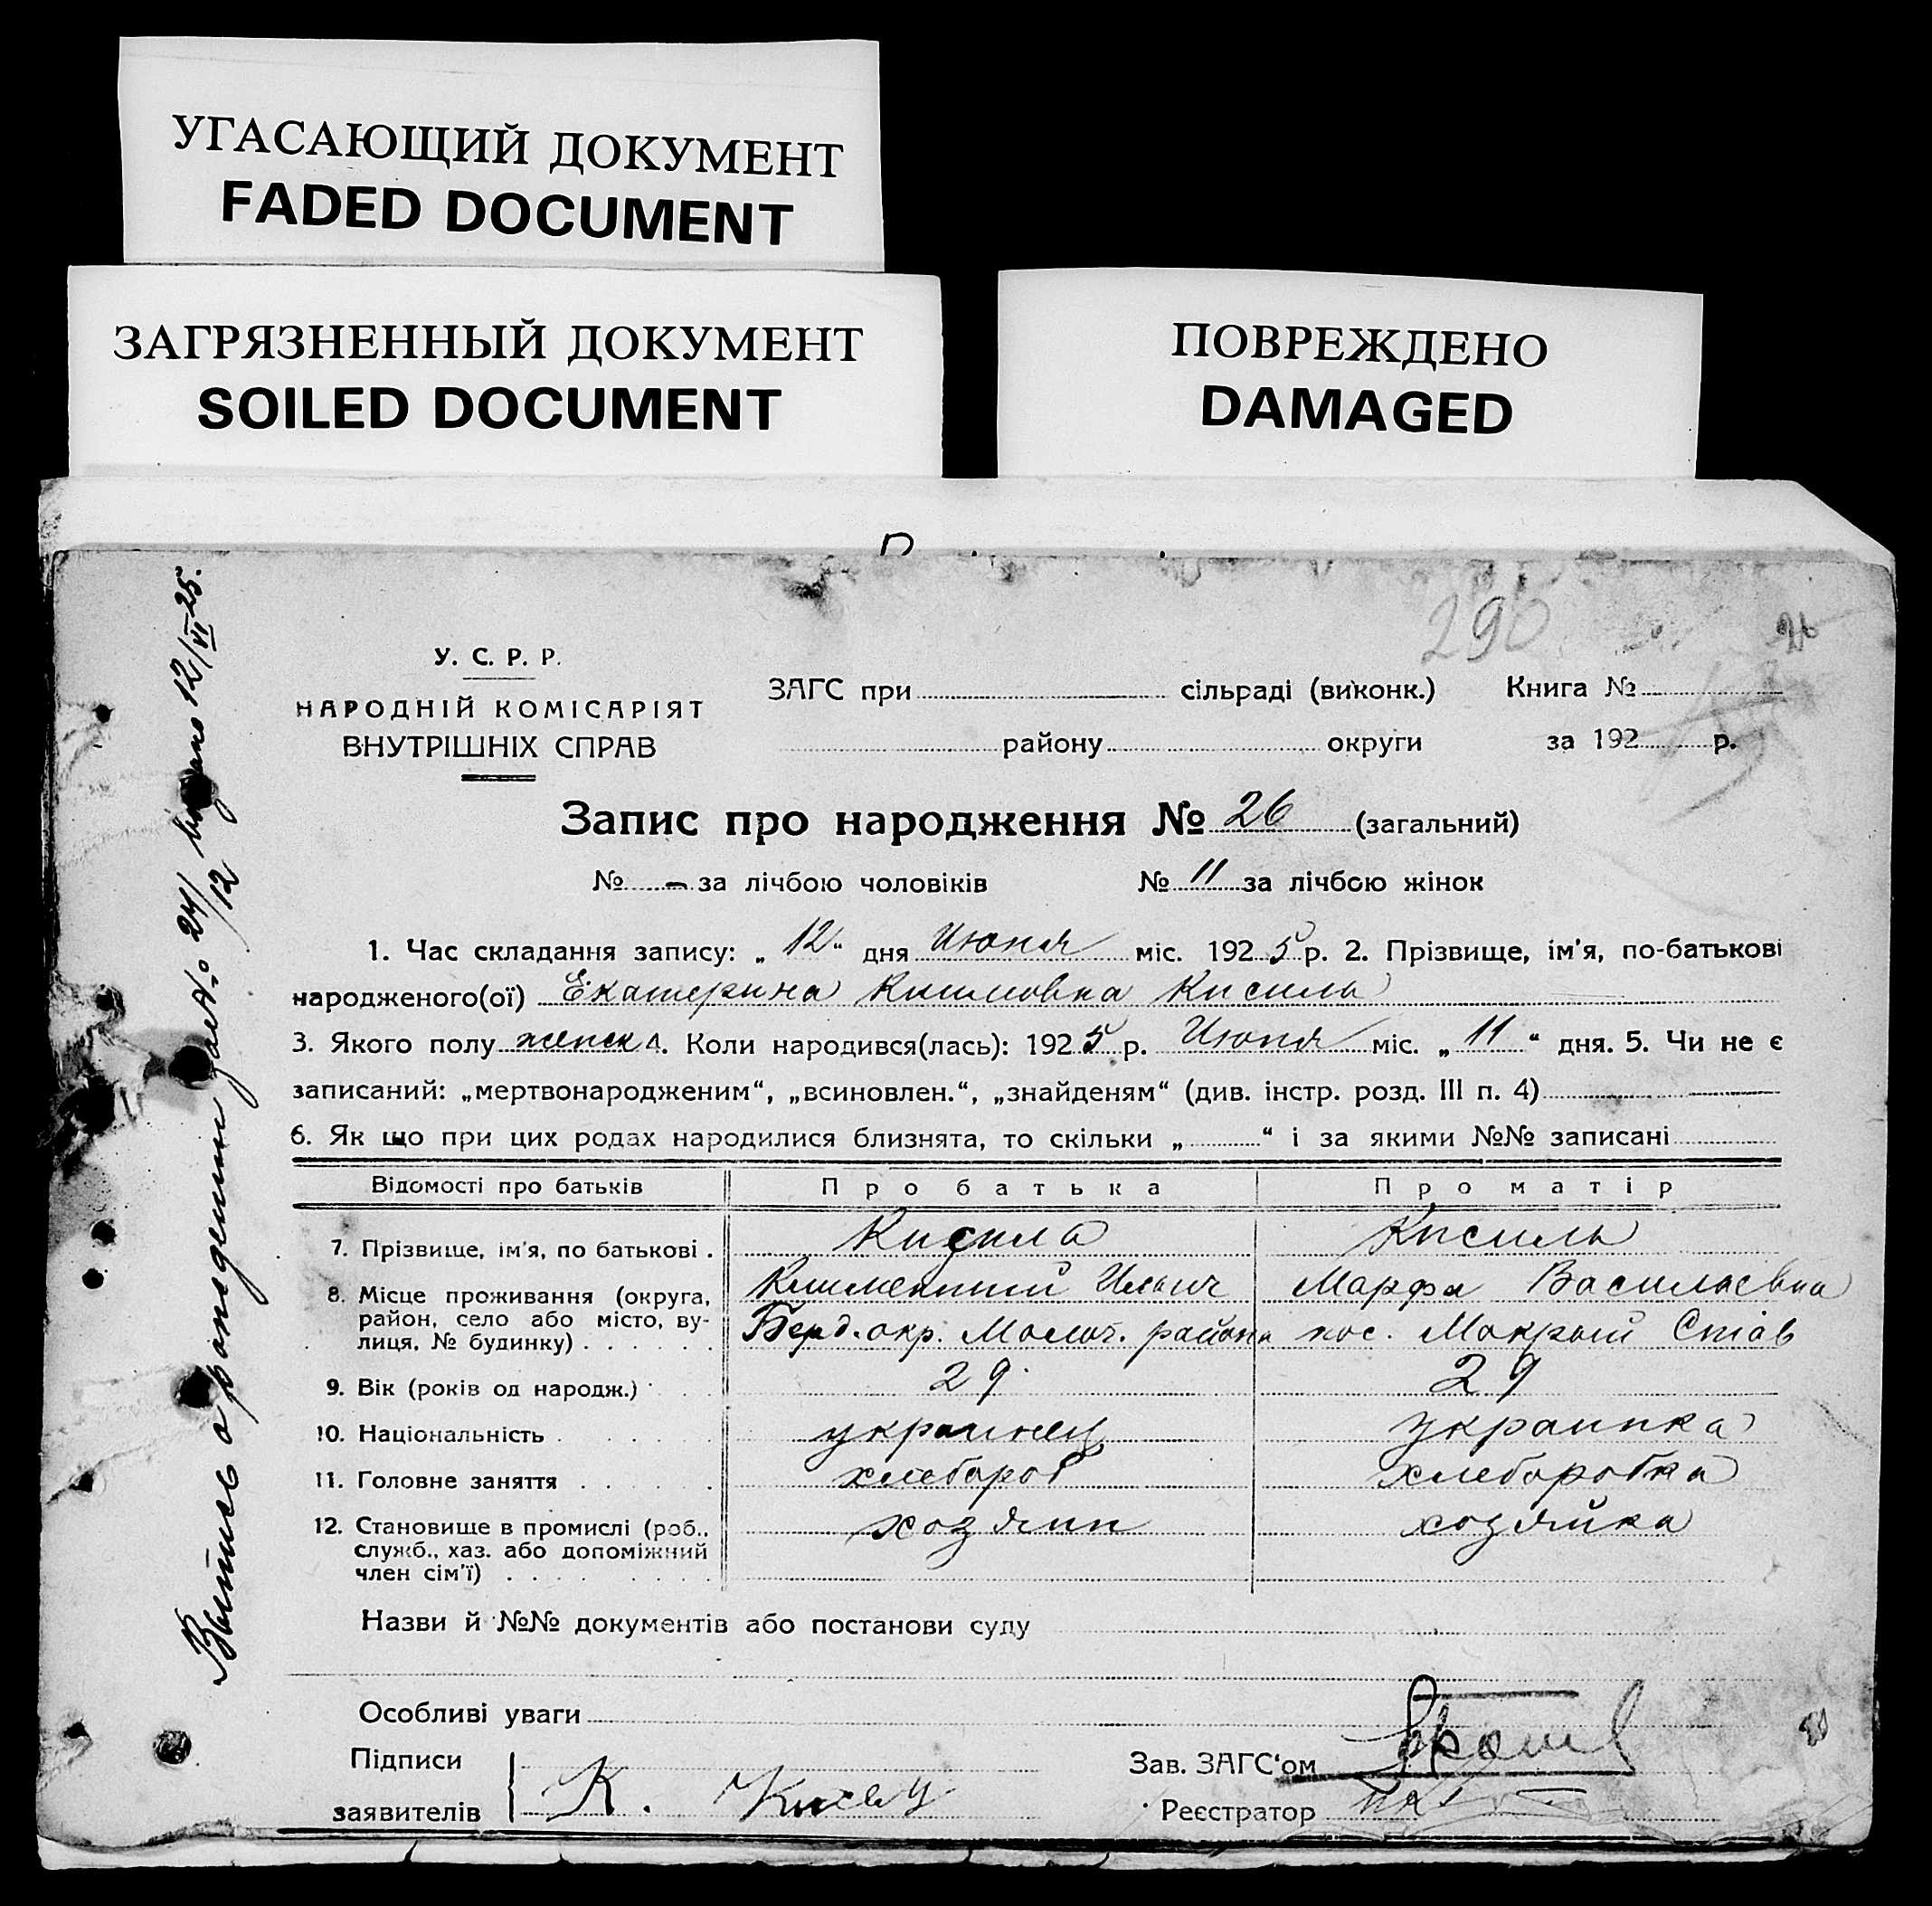 УГАСАЮЩИЙ ДОКУМЕНТ
FADED DOCUMENT
ЗАГРЯЗНЕННЫЙ ДОКУМЕНТ
SOILED DOCUMENT
ПОВРЕЖДЕНО
DAMAGED
290
26
У. С. Р. Р.
НАРОДНІЙ КОМІСАРІЯТ
ВНУТРІШНІХ СПРАВ
ЗАГС при сільраді (виконк.) Книга №
району округи за 192 р.
Запис про народження № 26 (загальний)
№ - за лічбою чоловіків № 11 за лічбою жінок
1. Час складання запису: „ 12 “ дня Июня міс. 192 5 р. 2. Прізвище, ім'я, по-батькові
народженого(ої) Екатерина Климовна Кисиль
3. Якого полу женск 4. Коли народився(лась): 192 5 р. Июня міс. „ 11 “ дня. 5. Чи не є
записаний: „мертвонародженим“, „всиновлен.“, „знайденям“ (див. інстр. розд. III п. 4)
6. Як що при цих родах народилися близнята, то скільки „ “ і за якими №№ записані
Відомості про батьків Про батька Про матір
7. Прізвище, ім'я, по батькові . Кисила Кисиль
Климентий Ильич Марфа Васильевна
8. Місце проживання (округа, район, село або місто, ву-
лиця, № будинку) . . . . . . Берд. окр. Молоч. района пос. Мокрый Став
9. Вік (років од народж.) 29 29
10. Національність . украинец украинка
11. Головне заняття . . . . . хлебороб хлеборобка
12. Становище в промислі (роб., хозяин хозяйка
служб., хаз. або допоміжний
член сім'ї) . . . . . . .
Назви й №№ документів або постанови суду
Особливі уваги
Підписи
заявителів К. Кисил
Зав. ЗАГС‘ом
Реєстратор
Выпись о рождении за № 24/12 выдано 12/VI 25.